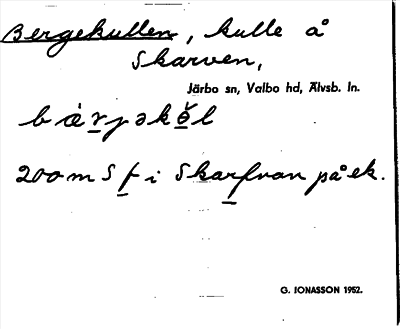 Bergekullen, kulle å
Skarven,
Järbo sn, Valbo hd, Älvsb. ln.
bæ̀rjəkö̌l
200 m S f i Skarfvan på ek.
G. JONASSON 1952.